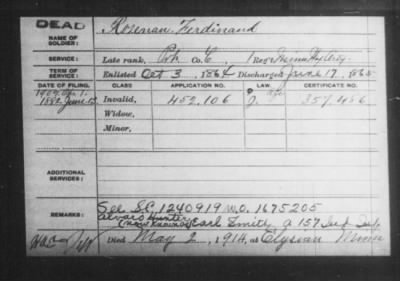 DEAD
NAME OF SOLDIER: Rosenau Ferdinand
SERVICE: Late rank, Pvt Co. C, 1 Reg't Minn Hy Arty
TERM OF SERVICE: Enlisted Oct 3, 1864 Discharged June 17, 1865
DATE OF FILING. CLASS. APPLICATION NO. LAW. CERTIFICATE NO.
1882 June 13 Invalid, 452.106
Widow,
Minor,
ADDITIONAL SERVICES:
REMARKS: See S.C. 1240919 W.O. 1675205
Alvaro Hunter
(now known as) Earl Smith, A 157 Ind Inf
Died May 2, 1914, at Elysian Minn